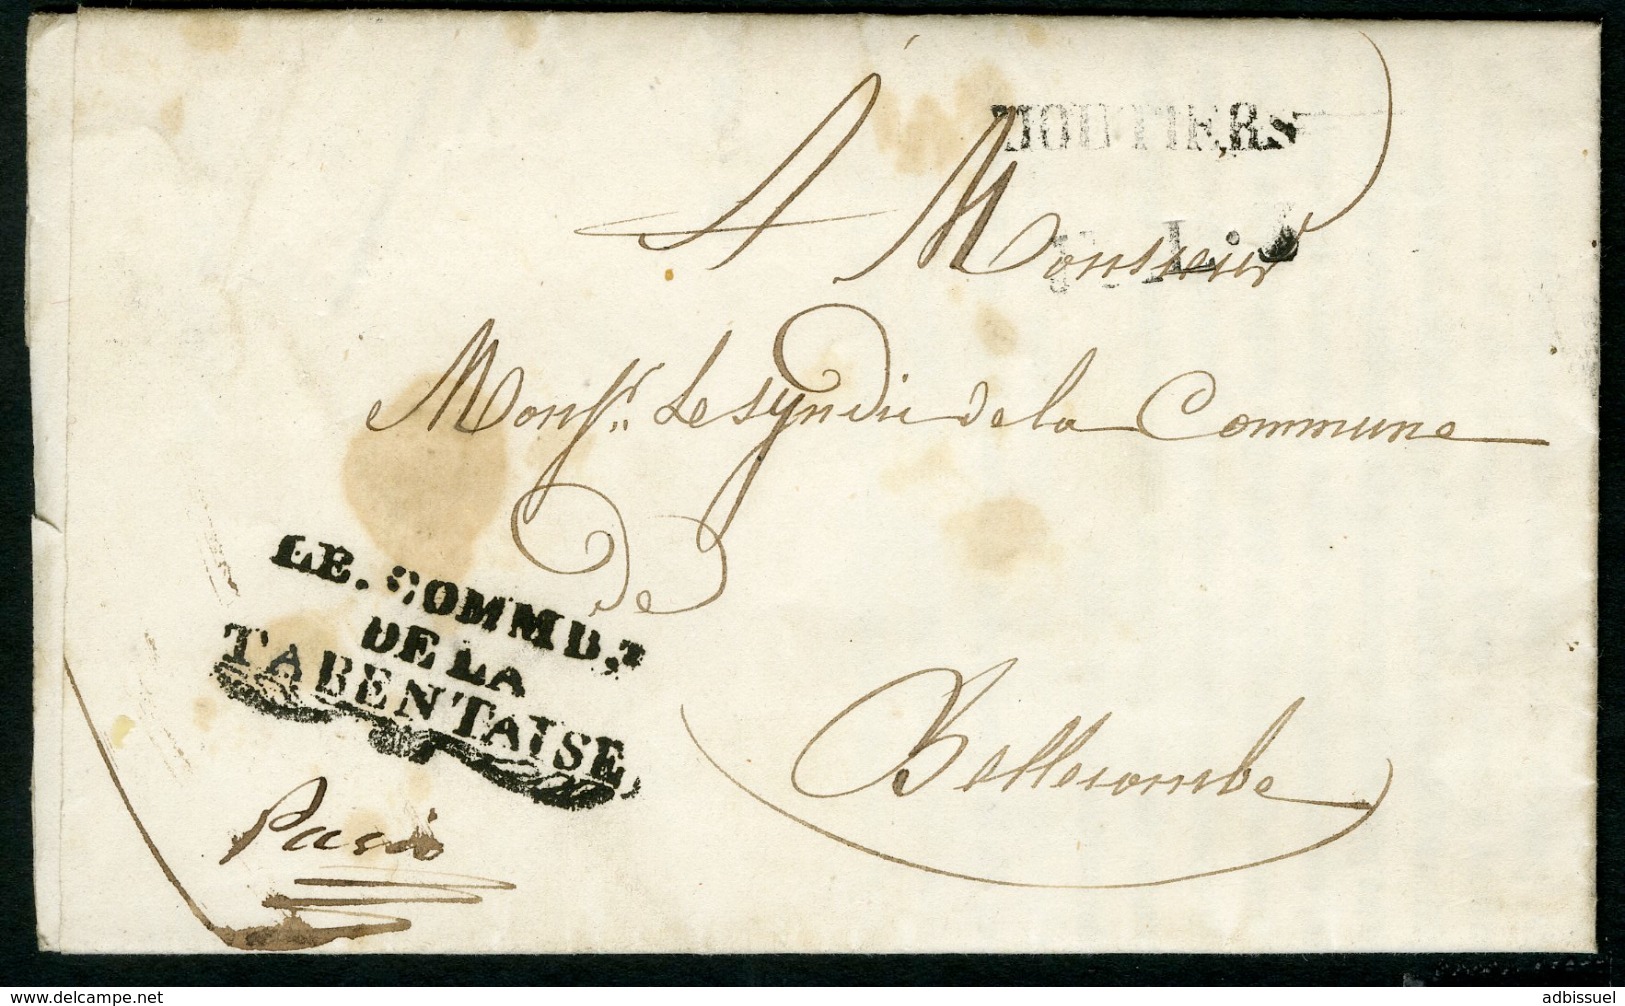 MOUTIERS
A Monsieur
Monsr. Le Syndic de la Commune
de
Bellecombe
LE. COMMD.T
DE LA
TARENTAISE
delcampe.net
adbissuel